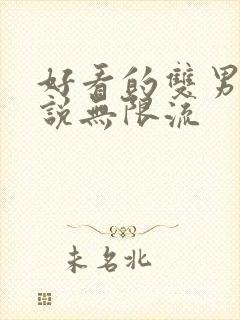 好看的雙男
說無限流
未名北